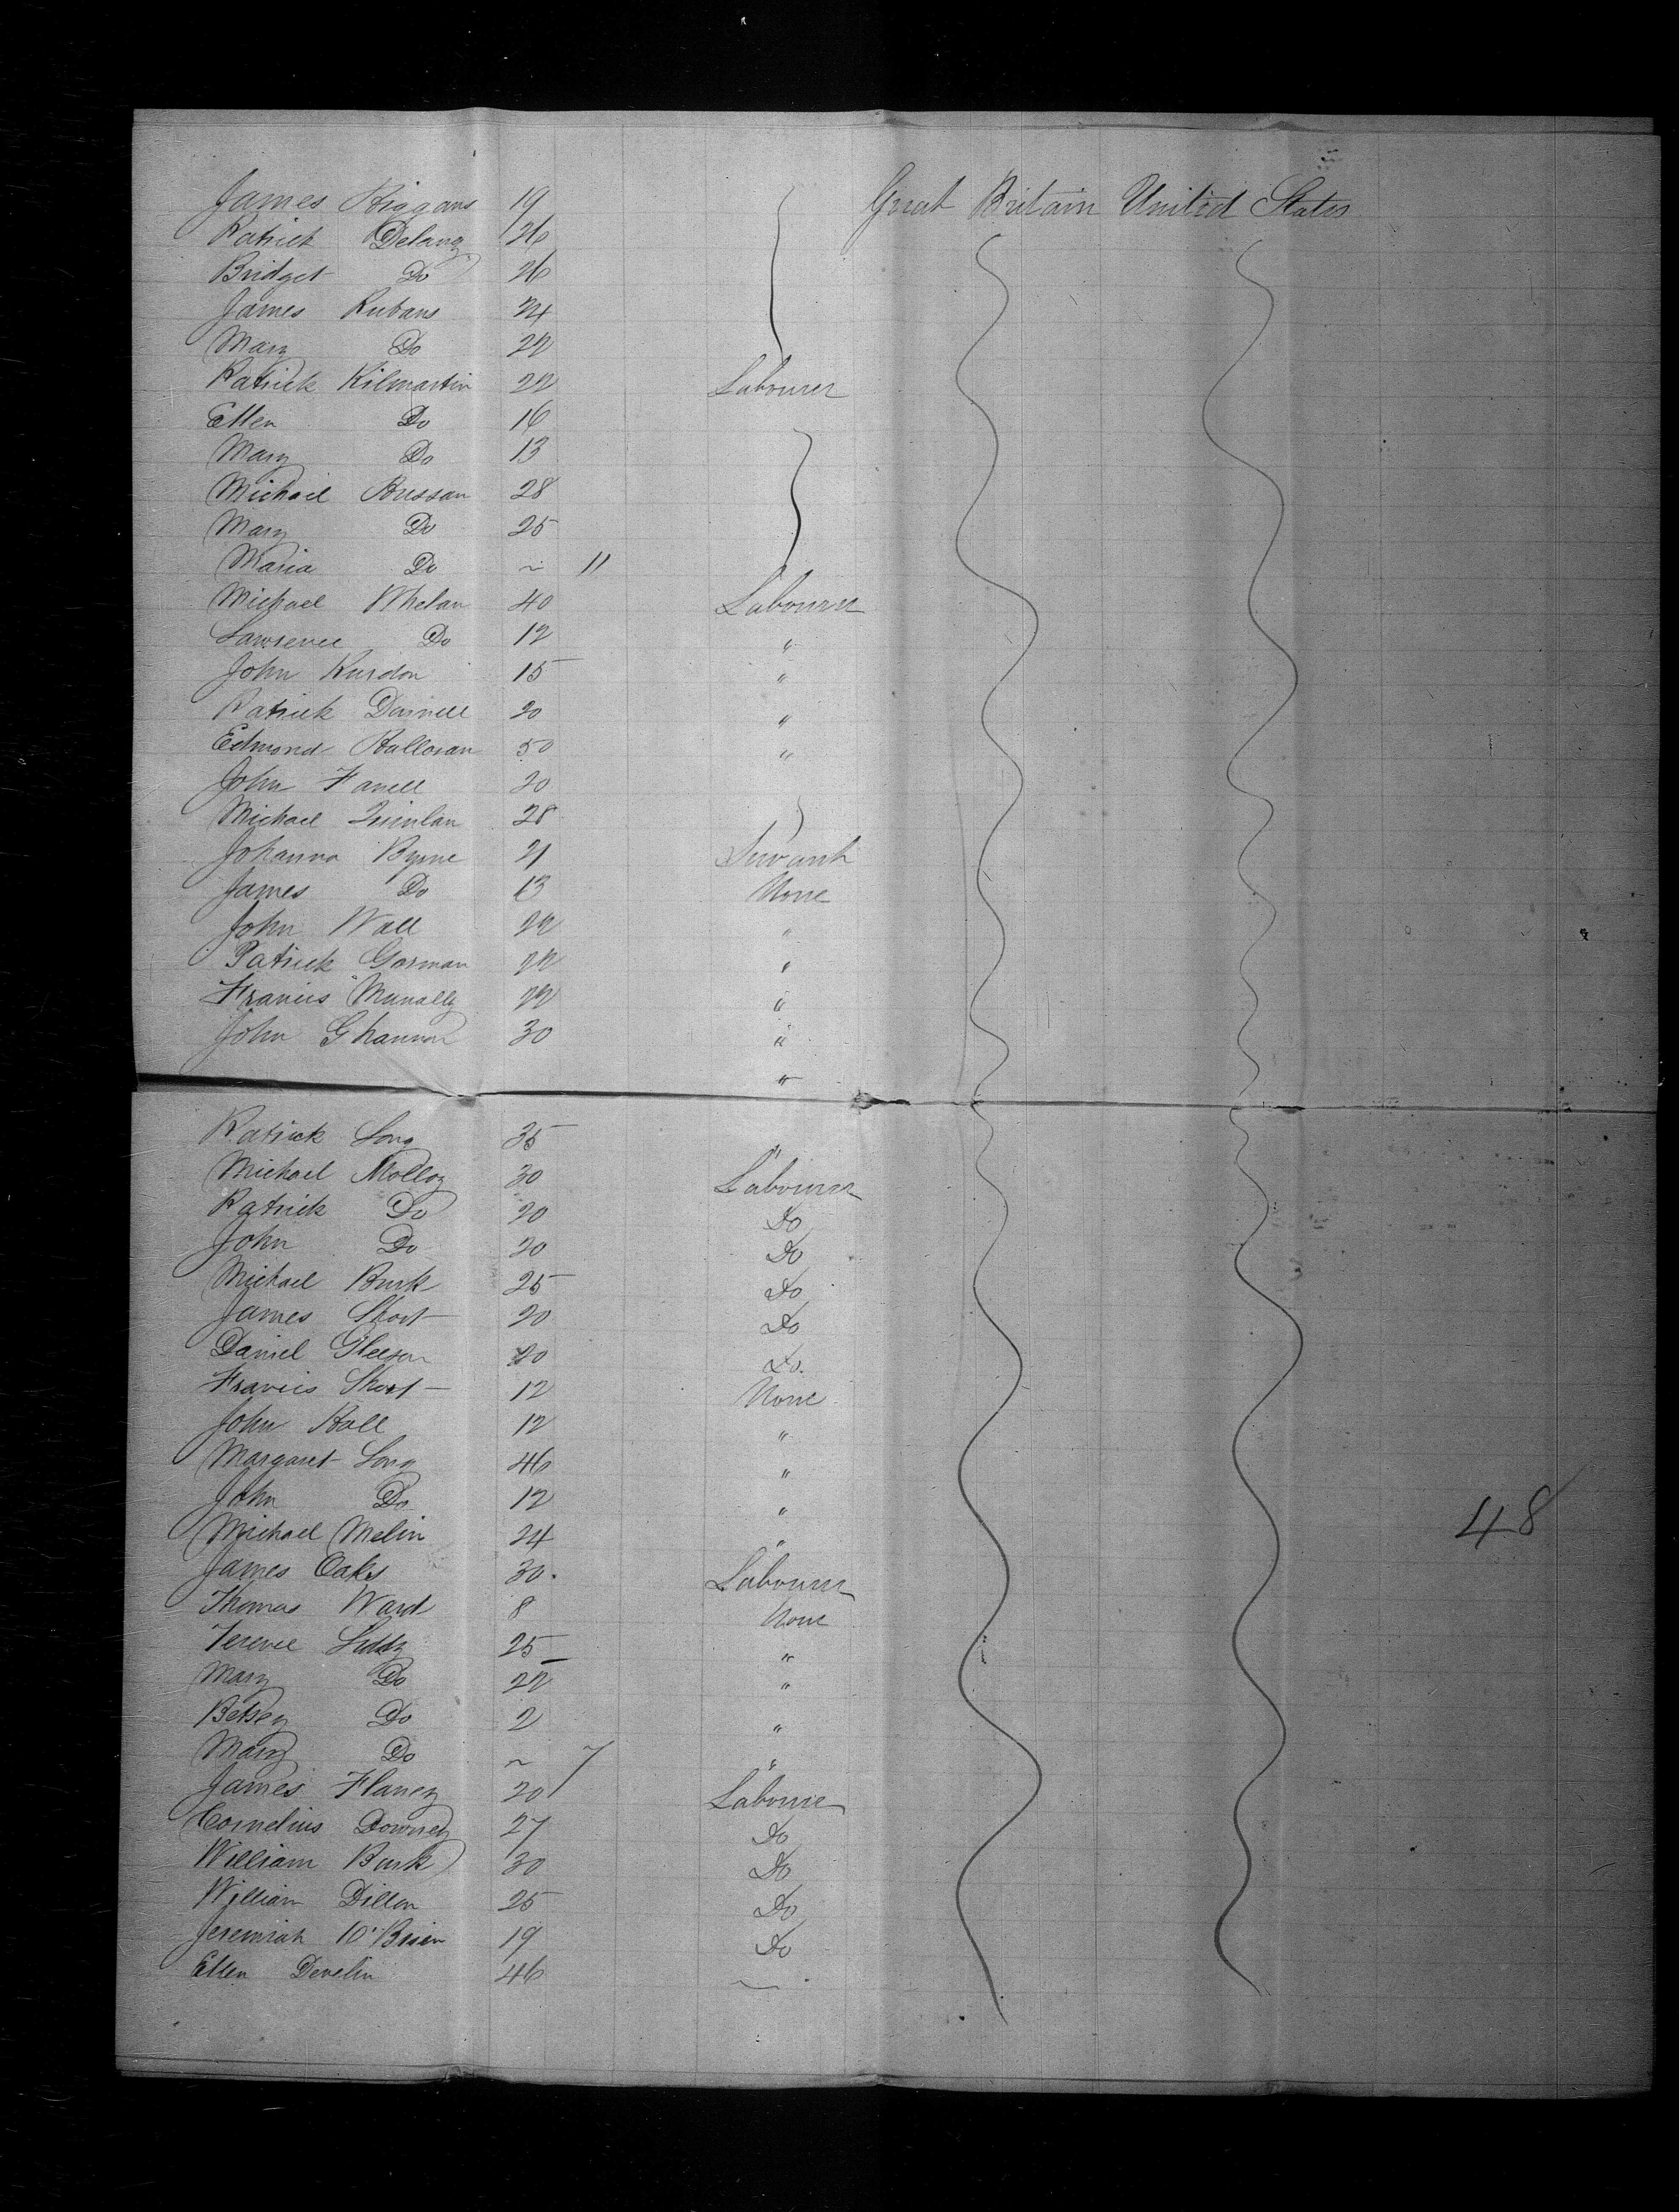 James Higgans 19 Great Britain United States
Patrick Delany 26
Bridget Do 26
James Rubans 24
Mary Do 22
Patrick Kilmartin 22 Labourer
Ellen Do 16
Mary Do 13
Michael Bressan 28
Mary Do 25
Maria Do ~ 11
Michael Whelan 40 Labourer
Lawrence Do 12 "
John Reardon 15 "
Patrick 20 "
Edmond Halloran 50 "
John Farrell 20
Michael Quinlan 28
Johanna Byrne 21 Servant
James Do 13 None
John Wall 22 "
Patrick Gorman 22 "
Francis Munally 22 "
John 30 "
"
Patrick Long 35 "
Michael Molloy 30 Labourer
Patrick Do 20 Do
John Do 20 Do
Michael Burk 25 Do
James Short 20 Do
Daniel Gleeson 20 Do.
Francis Short 12 None
John Hall 12 "
Margaret Long 46 "
John Do 12 "
Michael Melin 24 "
James Oaks 30. Labourer
48
Thomas Ward 8 None
Terence Liddy 25 "
Mary Do 22 "
Betsey Do 2 "
Mary Do ~ 7 "
James Flanery 20 Labourer
Cornelius Downey 27 Do
William Burk 30 Do
William Dillon 25 Do
Jeremiah O'Brien 19 Do
Ellen Develin 46 —